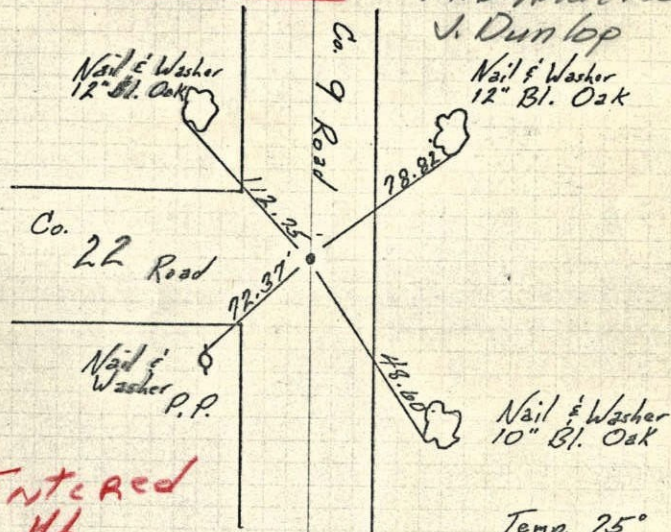 J. Dunlop
Nail & Washer
12" Bl. Oak
Co. 9 Road
Nail & Washer
12" Bl. Oak
112.75'
78.82'
Co. 22 Road
72.37'
Nail &
Washer
P.P.
48.60
Nail & Washer
10" Bl. Oak
Entered
Temp 25°